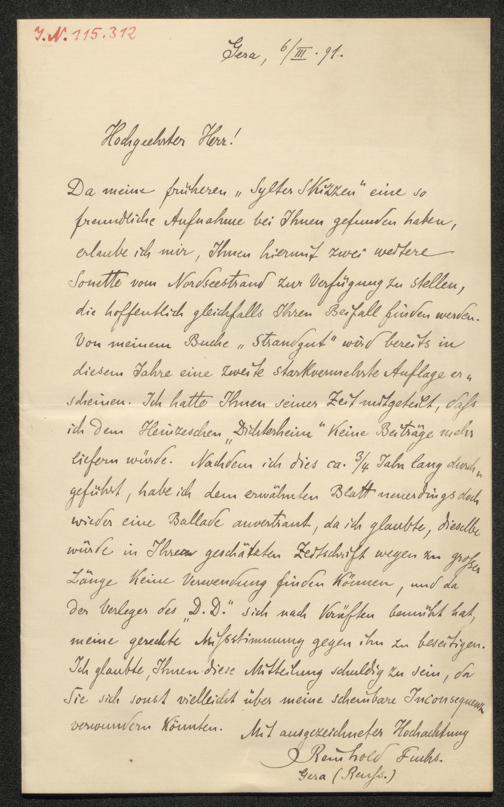 J.N. 115.312
Gera, 6/III. 91.
Hochgeehrter Herr!
Da meine früheren „Sylter Skizzen" eine so
freundliche Aufnahme bei Ihnen gefunden haben,
erlaube ich mir, Ihnen hiermit zwei weitere
Sonette vom Nordseestrand zur Verfügung zu stellen,
die hoffentlich gleichfalls Ihren Beifall finden werden.
Von meinem Buche „Strandgut" wird bereits in
diesem Jahre eine zweite starkvermehrte Auflage er„
scheinen. Ich hatte Ihnen seiner Zeit mitgeteilt, daß
ich dem Heinzeschen „Dichterheim" keine Beiträge mehr
liefern würde. Nachdem ich dies ca. 3/4 Jahr lang durch„
geführt, habe ich dem erwähnten Blatt neuerdings doch
wieder eine Ballade anvertraut, da ich glaubte, dieselbe
würde in Ihrer geschätzten Zeitschrift wegen zu großer
Länge keine Verwendung finden können, und da
der Verleger des „D. D." sich nach Kräften bemüht hat,
meine gerechte Mißstimmung gegen ihn zu beseitigen.
Ich glaubte, Ihnen diese Mitteilung schuldig zu sein, da
Sie sich sonst vielleicht über meine scheinbare Inconsequenz
verwundern könnten. Mit ausgezeichneter Hochachtung
Reinhold Fuchs.
Gera (Reuß.)